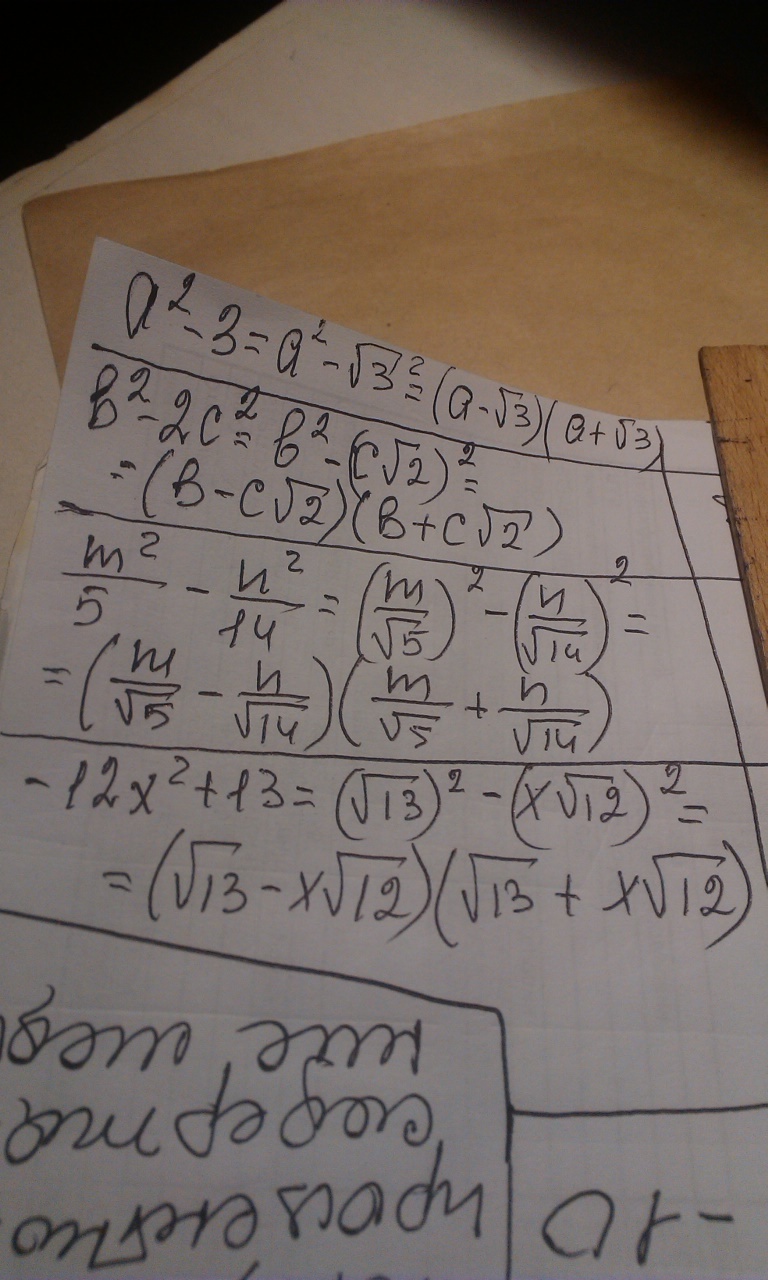 a² - 3 = a² - √3² = (a - √3)(a + √3)
b² - 2c² = b² - (c√2)² =
= (b - c√2)(b + c√2)
m²/5 - n²/14 = (m/√5)² - (n/√14)² =
= (m/√5 - n/√14)(m/√5 + n/√14)
-12x² + 13 = (√13)² - (x√12)² =
= (√13 - x√12)(√13 + x√12)